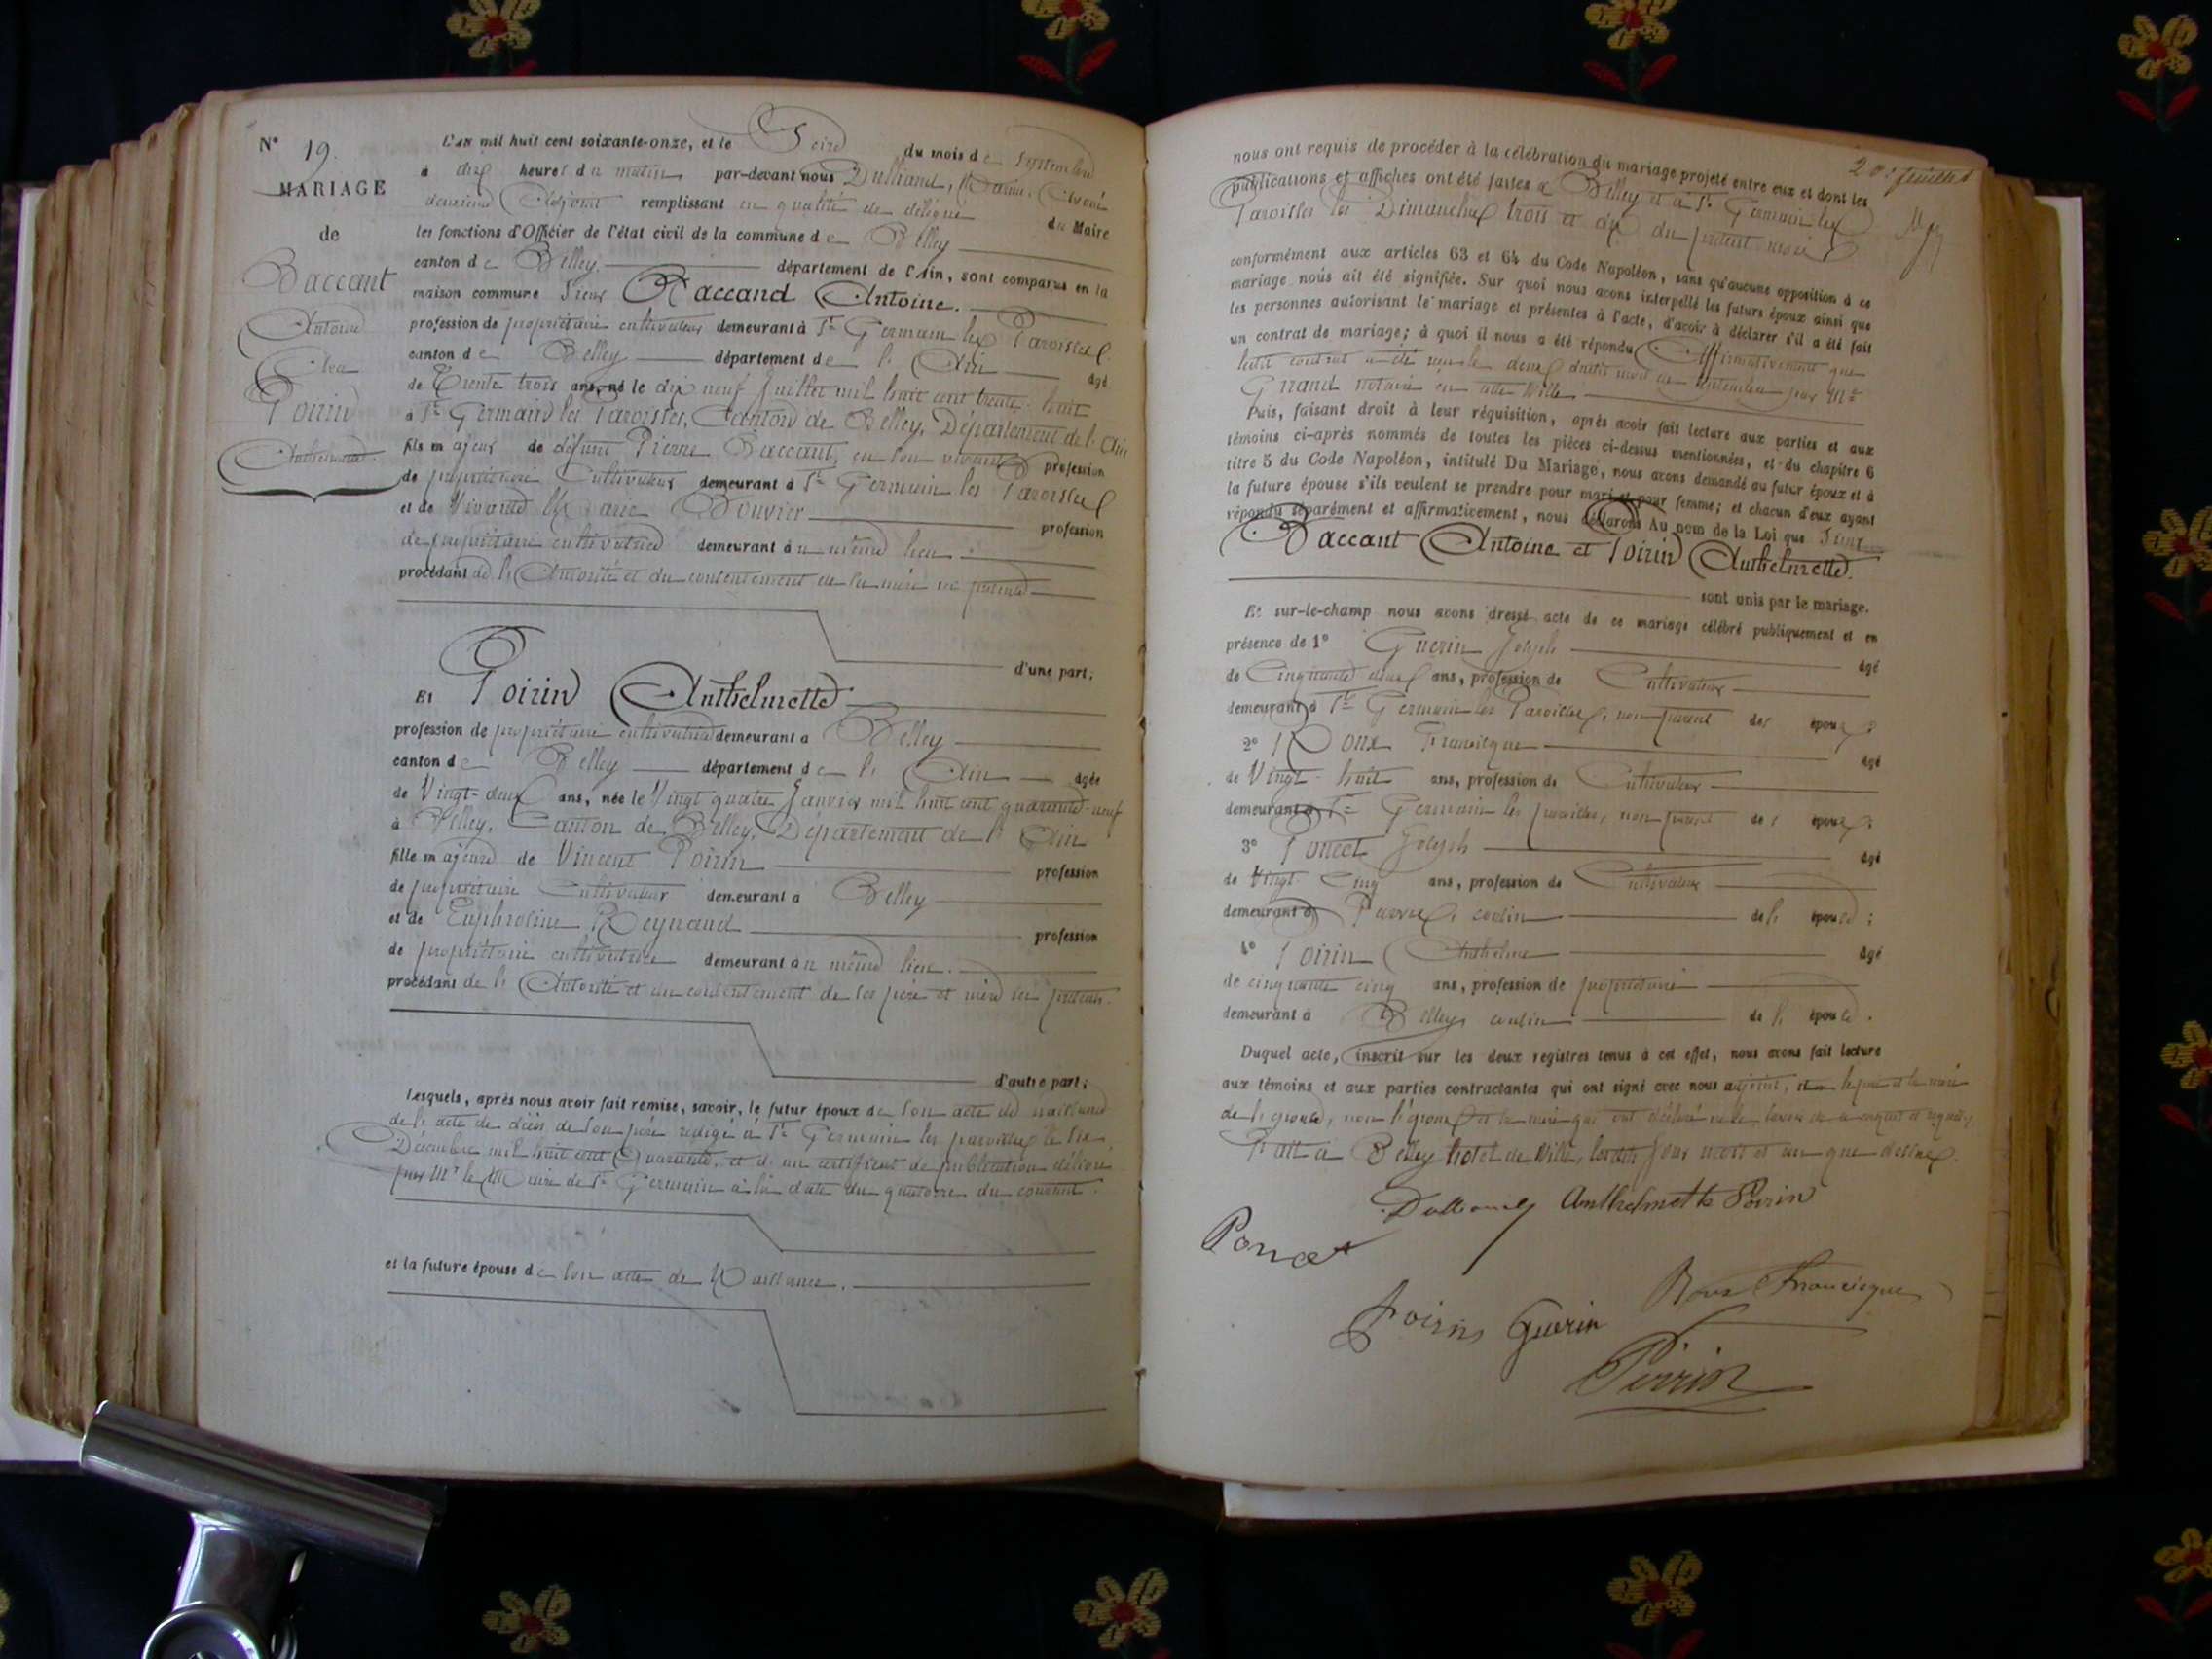 N° 19.
MARIAGE
de
Baccant
Antoine
Et
Poirin
Anthelmette
L'an mil huit cent soixante-onze, et le Seize du mois de Septembre
à dix heures du matin par-devant nous Dulliand,
deuxième Adjoint remplissant en qualité de délégué du Maire
les fonctions d'Officier de l'état civil de la commune de Belley
canton de Belley département de l'Ain, sont comparus en la
maison commune Sieur Baccand Antoine.
profession de propriétaire cultivateur demeurant à St Germain les Paroisses
canton de Belley département de l'Ain âgé
de Trente trois ans, né le dix neuf Juillet mil huit cent trente-huit
à St Germain les Paroisses, Canton de Belley, Département de l'Ain
fils majeur de défunt Pierre Baccant, en son vivant profession
de propriétaire Cultivateur demeurant à St Germain les Paroisses
et de Vivante Marie Bouvier profession
de propriétaire cultivatrice demeurant au même lieu.
procédant de l'Autorité et du consentement de sa mère ici présente
d'une part;
Et Poirin Anthelmette
profession de propriétaire cultivatrice demeurant à Belley
canton de Belley département de l'Ain âgée
de Vingt-deux ans, née le Vingt quatre Janvier mil huit cent quarante-neuf
à Belley, Canton de Belley, Département de l'Ain
fille majeure de Vincent Poirin profession
de propriétaire Cultivateur demeurant à Belley
et de Euphrosine Reynaud profession
de propriétaire cultivatrice demeurant au même lieu.
procédant de l'Autorité et du consentement de ses père et mère ici présents.
d'autre part;
Lesquels, après nous avoir fait remise, savoir, le futur époux de son acte de naissance
de l'acte de décès de son père rédigé à St Germain les paroisses le six
Décembre mil huit cent Quarante, et d'un certificat de publication délivré
par Mr le Maire de St Germain à la date du quatorze du courant.
et la future épouse de son acte de Naissance.
20e feuillet
nous ont requis de procéder à la célébration du mariage projeté entre eux et dont les
publications et affiches ont été faites à Belley et à St Germain les
Paroisses les Dimanches trois et dix du présent mois
conformément aux articles 63 et 64 du Code Napoléon, sans qu'aucune opposition à ce
mariage nous ait été signifiée. Sur quoi nous avons interpellé les futurs époux ainsi que
les personnes autorisant le mariage et présentes à l'acte, d'avoir à déclarer s'il a été fait
un contrat de mariage; à quoi il nous a été répondu Affirmativement que
ledit contrat a été reçu le deux dudit mois de Septembre par Me
Girand notaire en cette Ville
Puis, faisant droit à leur réquisition, après avoir fait lecture aux parties et aux
témoins ci-après nommés de toutes les pièces ci-dessus mentionnées, et du chapitre 6
titre 5 du Code Napoléon, intitulé Du Mariage, nous avons demandé au futur époux et à
la future épouse s'ils veulent se prendre pour mari et pour femme; et chacun d'eux ayant
répondu séparément et affirmativement, nous déclarons Au nom de la Loi que Sieur
Baccant Antoine et Poirin Anthelmette.
sont unis par le mariage.
Et sur-le-champ nous avons dressé acte de ce mariage célébré publiquement et en
présence de 1° Guerin Joseph âgé
de Cinquante deux ans, profession de Cultivateur
demeurant à St Germain les Paroisses, non parent des époux;
2° Roux Francisque âgé
de Vingt-huit ans, profession de Cultivateur
demeurant à St Germain les paroisses, non parent des époux;
3° Poncet Joseph âgé
de Vingt Cinq ans, profession de Cultivateur
demeurant à Parves, cousin de l'épouse;
4° Poirin Anthelme âgé
de cinquante cinq ans, profession de propriétaire
demeurant à Belley cousin de l'épouse.
Duquel acte, inscrit sur les deux registres tenus à cet effet, nous avons fait lecture
aux témoins et aux parties contractantes qui ont signé avec nous adjoint, le père et la mère
de l'épouse, non l'époux et sa mère qui ont déclaré ne le savoir de ce enquis et requis.
Fait à Belley hôtel de Ville, lesdits jour mois et an que dessus.
Dulliand Anthelmette Poirin
Poncet
Roux Francisque
Poirin Guerin
Poirin